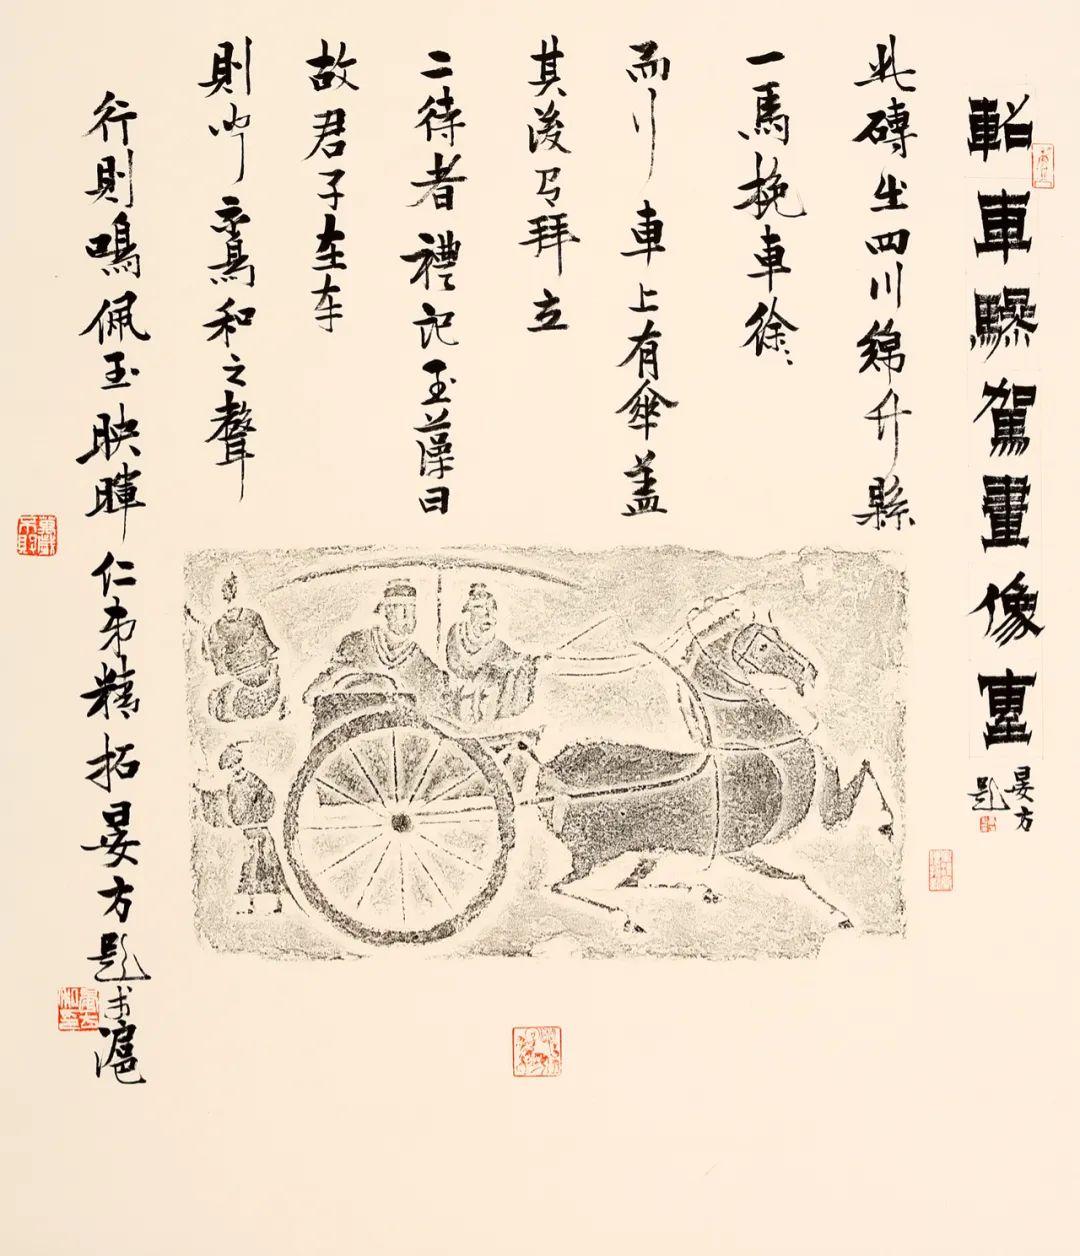 軺車驂駕畫像塼
晏方
題
此磚出四川綿竹縣
一馬挽車徐〻
而行車上有傘蓋
其後乃拜立
二待者禮記玉藻曰
故君子在車
則聞鸞和之聲
行則鳴佩玉映暉仁弟精拓晏方題於滬